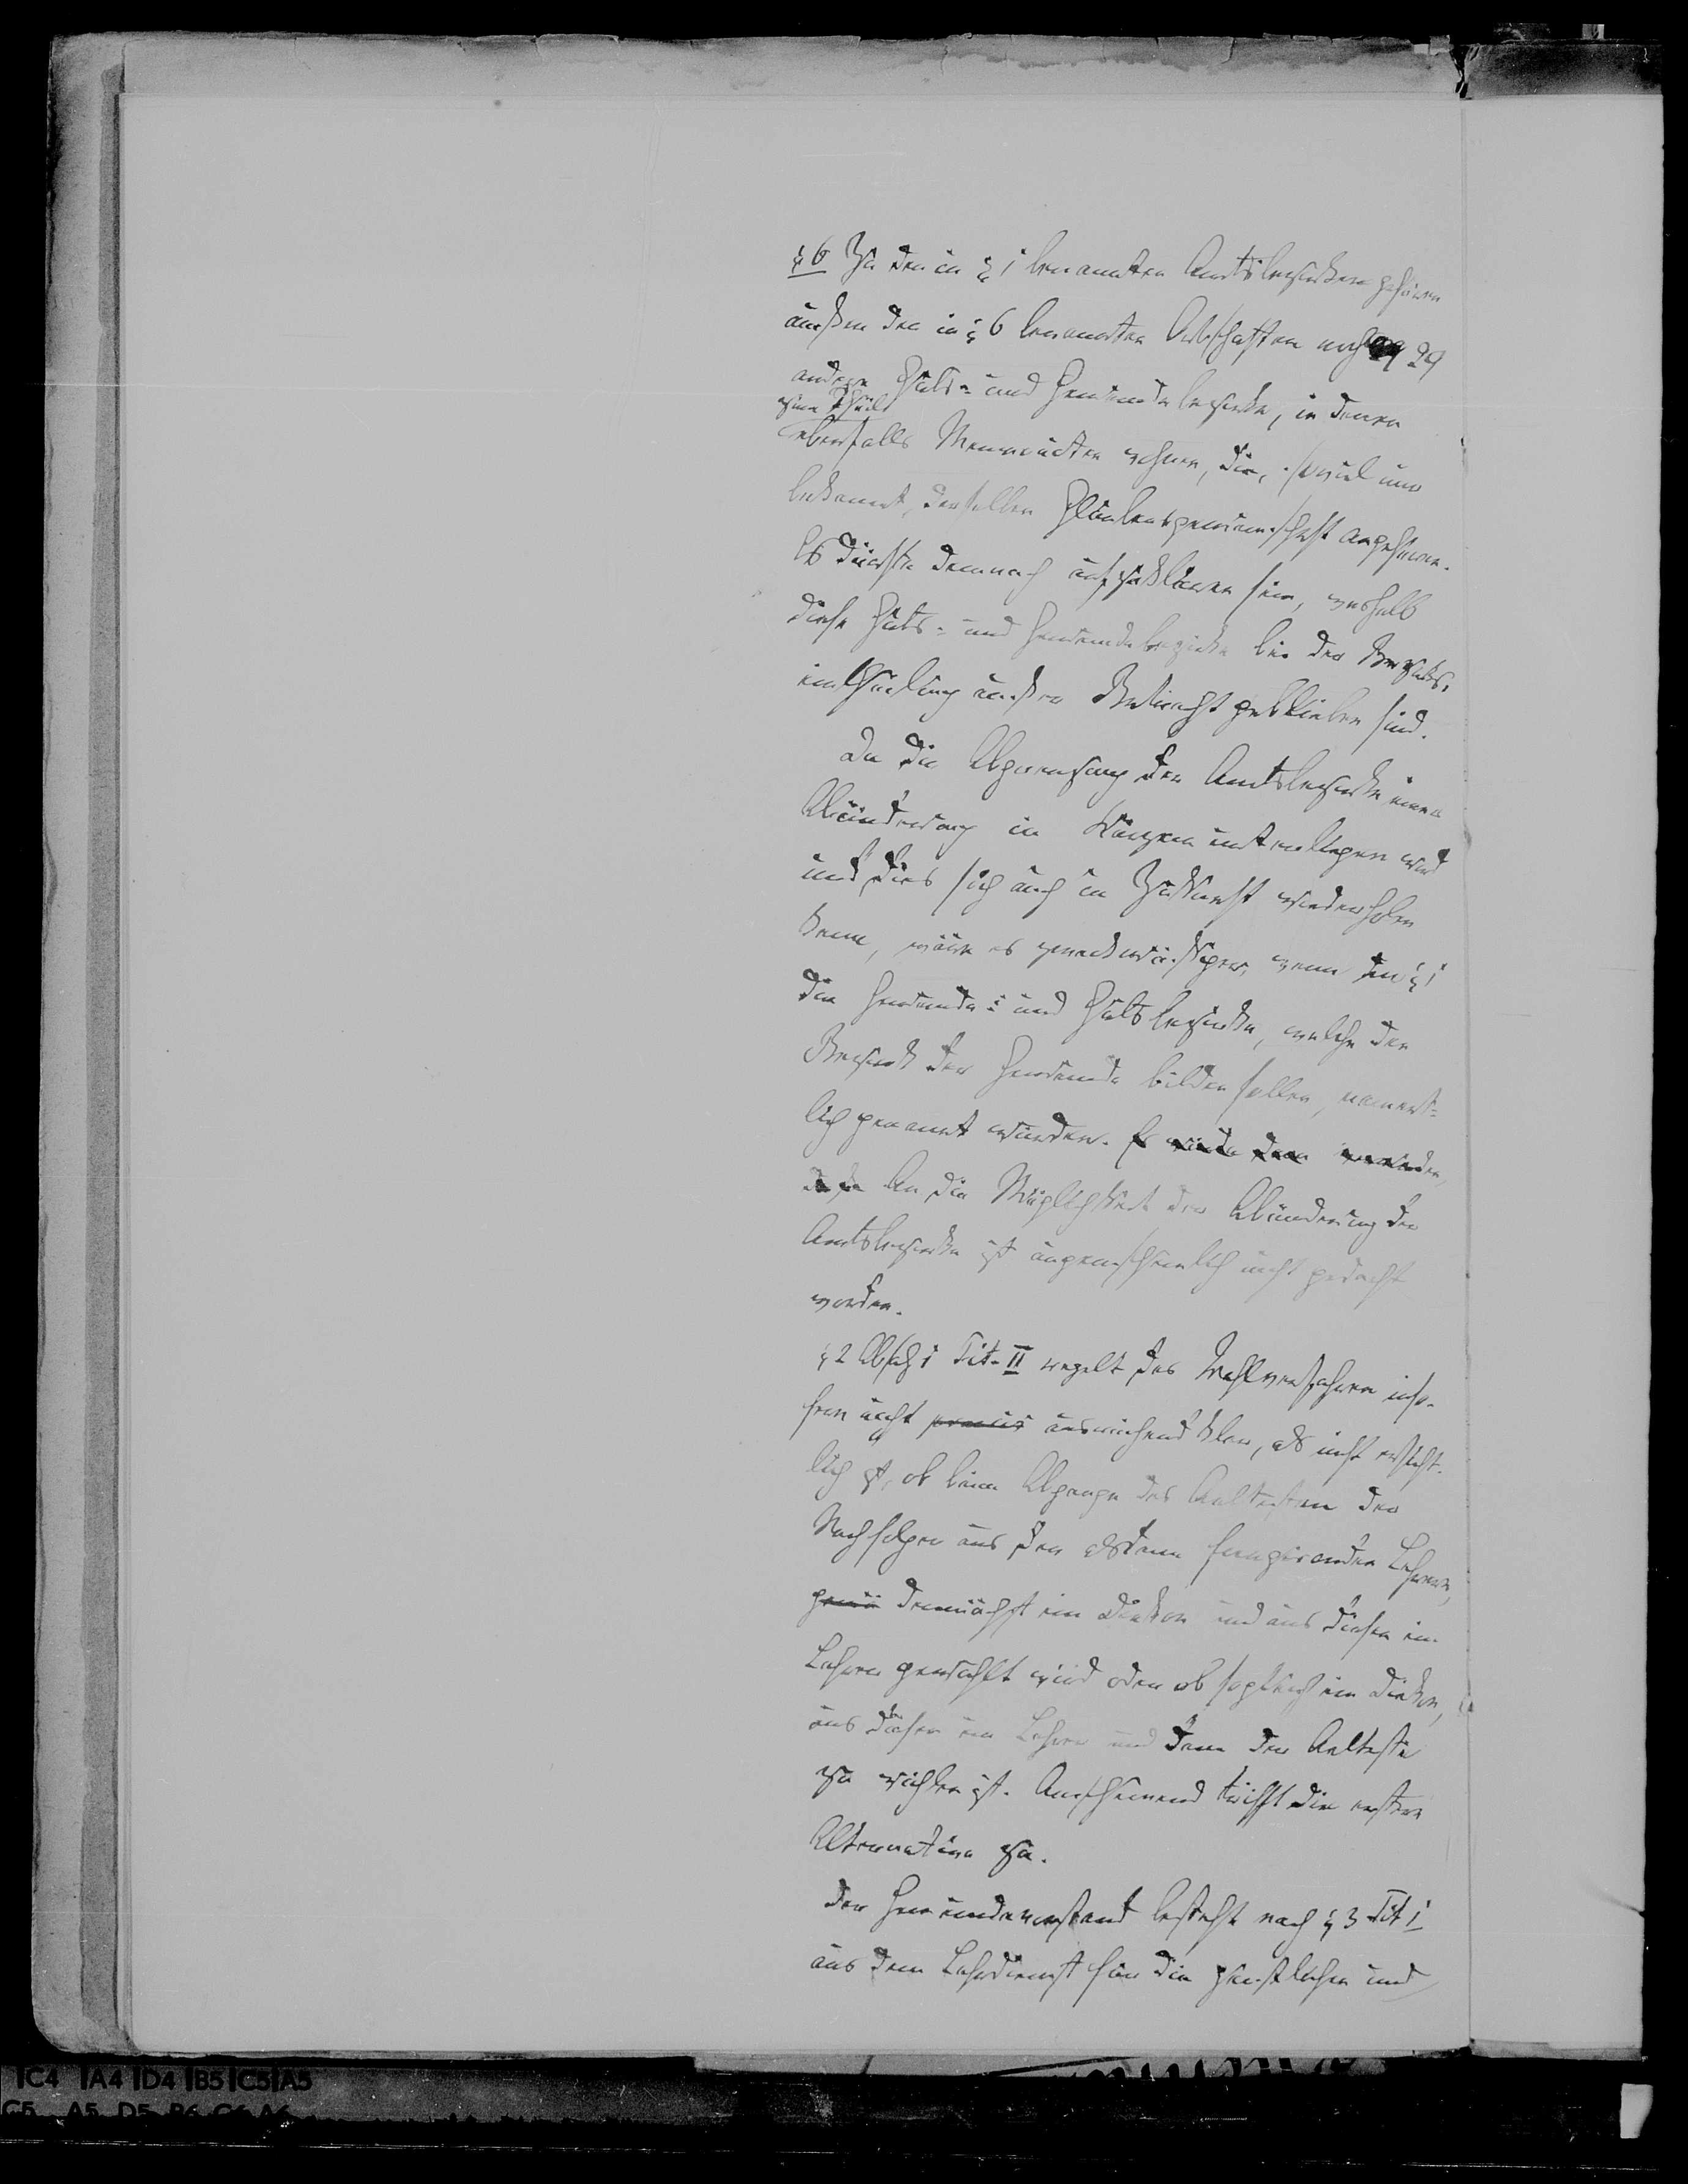 § 6 Zu den in § 1 benannten Amtsbezirken gehören
außer den in § 6 benannten Ortschaften noch 29
andere Guts- und Gemeindebezirke, in denen
zum Theil
ebenfalls Mennoniten wohnen, die, soviel uns
bekannt, derselben Glaubensgemeinschaft angehören.
Es dürfte demnach aufzuklären sein, weshalb
diese Guts- und Gemeindebezirke bei der Bezirks-
eintheilung außer Betracht geblieben sind.
Da die Abgrenzung der Amtsbezirke einer
Abänderung in Kürzem unterliegen wird
und dies sich auch in Zukunft wiederholen
kann, wäre es zweckmäßiger, wenn im § 1
die Gemeinde- und Gutsbezirke, welche den
Bezirk der Gemeinde bilden sollen, nament-
lich genannt würden. Es würde dann
An die Möglichkeit der Abänderung der
Amtsbezirke ist augenscheinlich nicht gedacht
worden.
§ 2 Absatz 1 Tit. II regelt das Wahlverfahren inso-
fern nicht präcis ausreichend klar, als nicht ersicht-
lich ist, ob beim Abgange des Aeltesten der
Nachfolger aus den alsdann fungirenden Lehrern,
demnächst ein Diakon und aus diesen ein
Lehrer gewählt wird oder ob sogleich ein Diakon,
aus diesen ein Lehrer und dann der Aelteste
zu wählen ist. Anscheinend trifft die erstere
Alternative zu.
Der Gemeindevorstand besteht nach § 3 Tit I
aus dem Lehrdienst für die geistlichen und
C4 A4 D4 B5 C5 A5
C5 A5 D5 B6 C6 A6